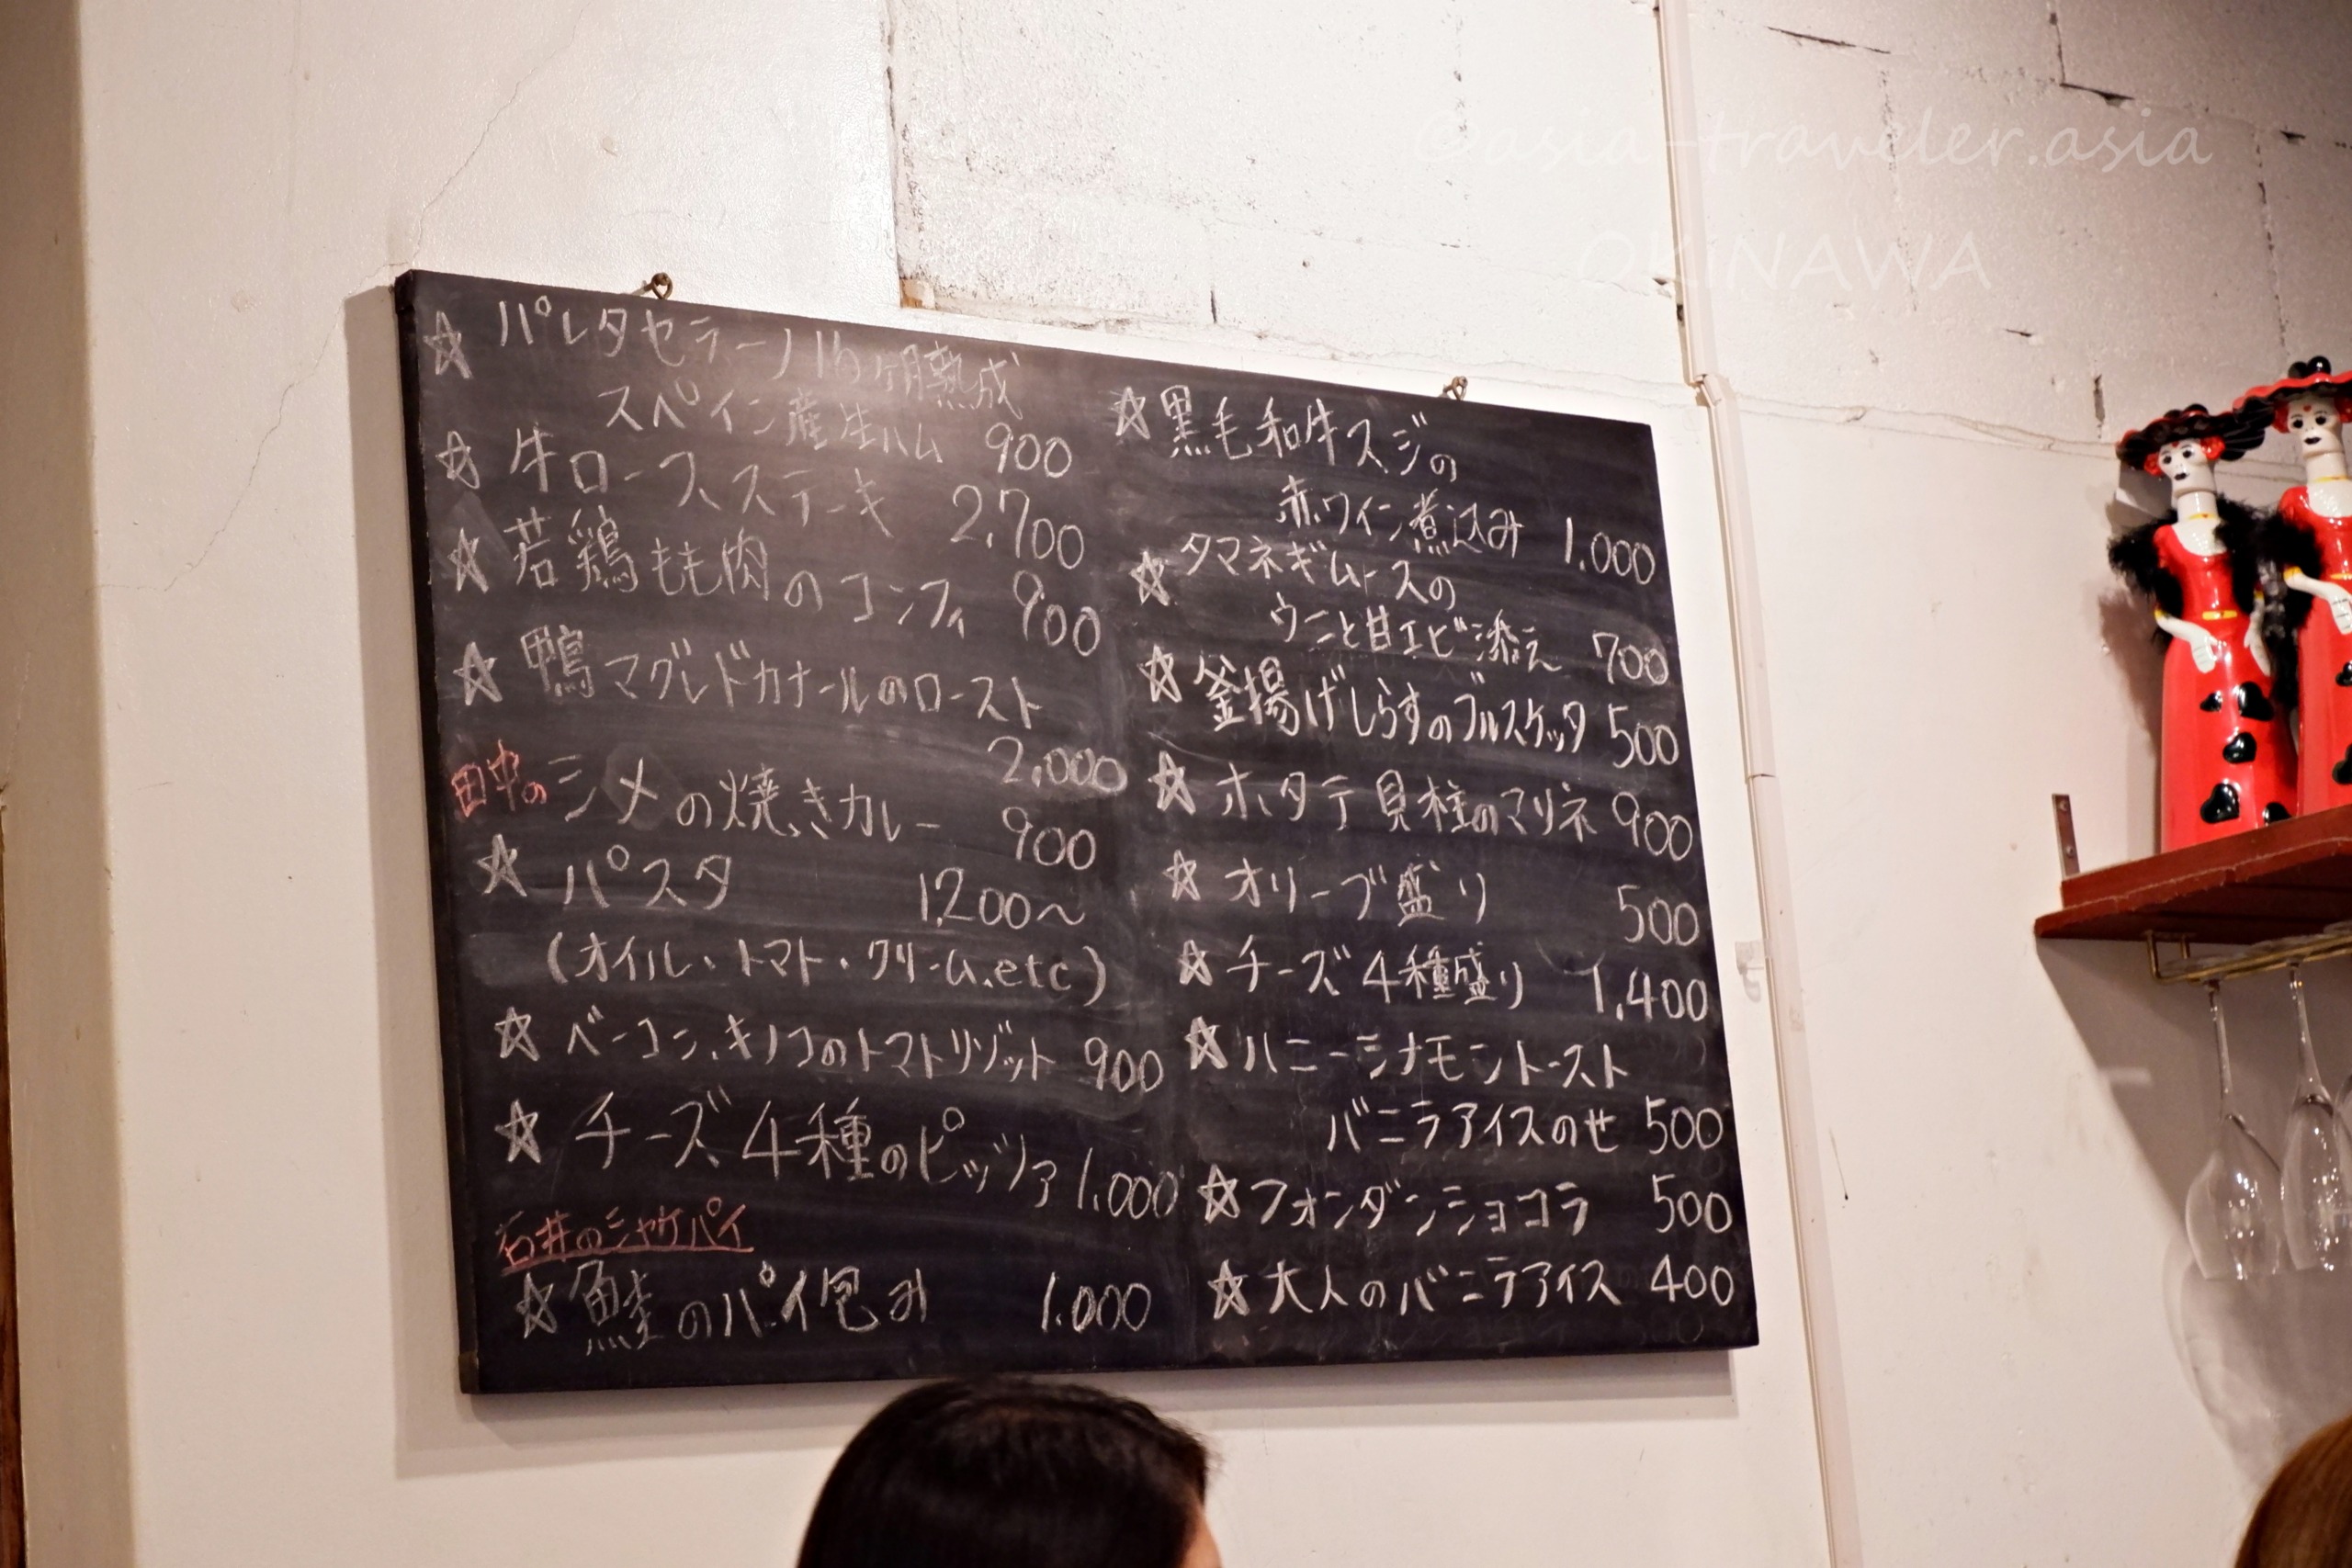 ©asia-traveler.asia
OKINAWA
☆ パレタセラーノ15ヶ月熟成
スペイン産生ハム 900
☆ 牛ロースステーキ 2,700
☆ 若鶏もも肉のコンフィ 900
☆ 鴨マグレドカナールのロースト
2,000
田中の シメの焼きカレー 900
☆ パスタ 1,200〜
(オイル・トマト・クリーム.etc)
☆ ベーコン、キノコのトマトリゾット 900
☆ チーズ4種のピッツァ 1,000
石井のシャケパイ
☆ 鮭のパイ包み 1,000
☆ 黒毛和牛スジの
赤ワイン煮込み 1,000
☆ タマネギムースの
ウニと甘エビ添え 700
☆ 釜揚げしらすのブルスケッタ 500
☆ ホタテ貝柱のマリネ 900
☆ オリーブ盛り 500
☆ チーズ4種盛り 1,400
☆ ハニーシナモントースト
バニラアイスのせ 500
☆ フォンダンショコラ 500
☆ 大人のバニラアイス 400